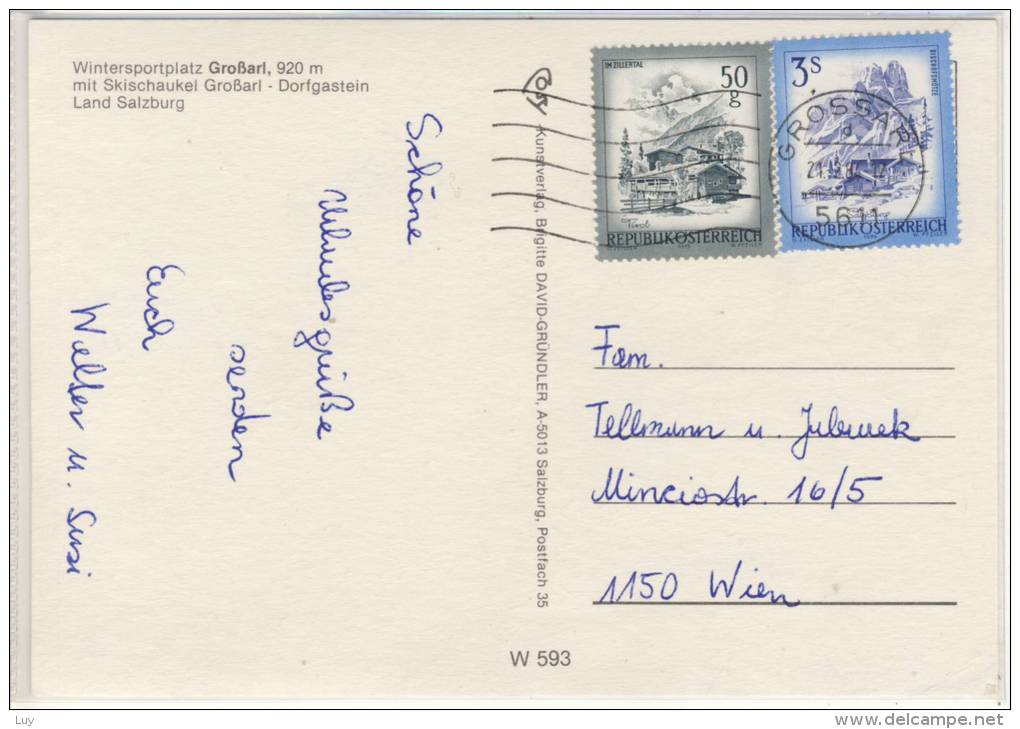 Wintersportplatz Großarl, 920 m
mit Skischaukel Großarl - Dorfgastein
Land Salzburg
Schöne
Urlaubsgrüße
senden
Euch
Walter u. Susi
Kunstverlag, Brigitte DAVID-GRÜNDLER, A-5013 Salzburg, Postfach 35
IM ZILLERTAL
50
g
Tirol
REPUBLIK ÖSTERREICH
3S
BISCHOFSMÜTZE
REPUBLIK ÖSTERREICH
GROSSARL
5611
Fam.
Tellmann u.
Minciostr. 16/5
1150 Wien
W 593
Luy
delcampe.net